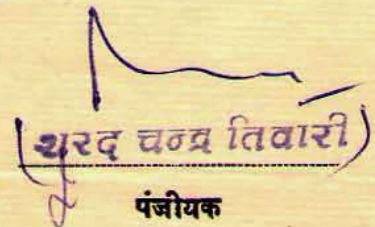 (शरद चन्द्र तिवारी)
पंजीयक